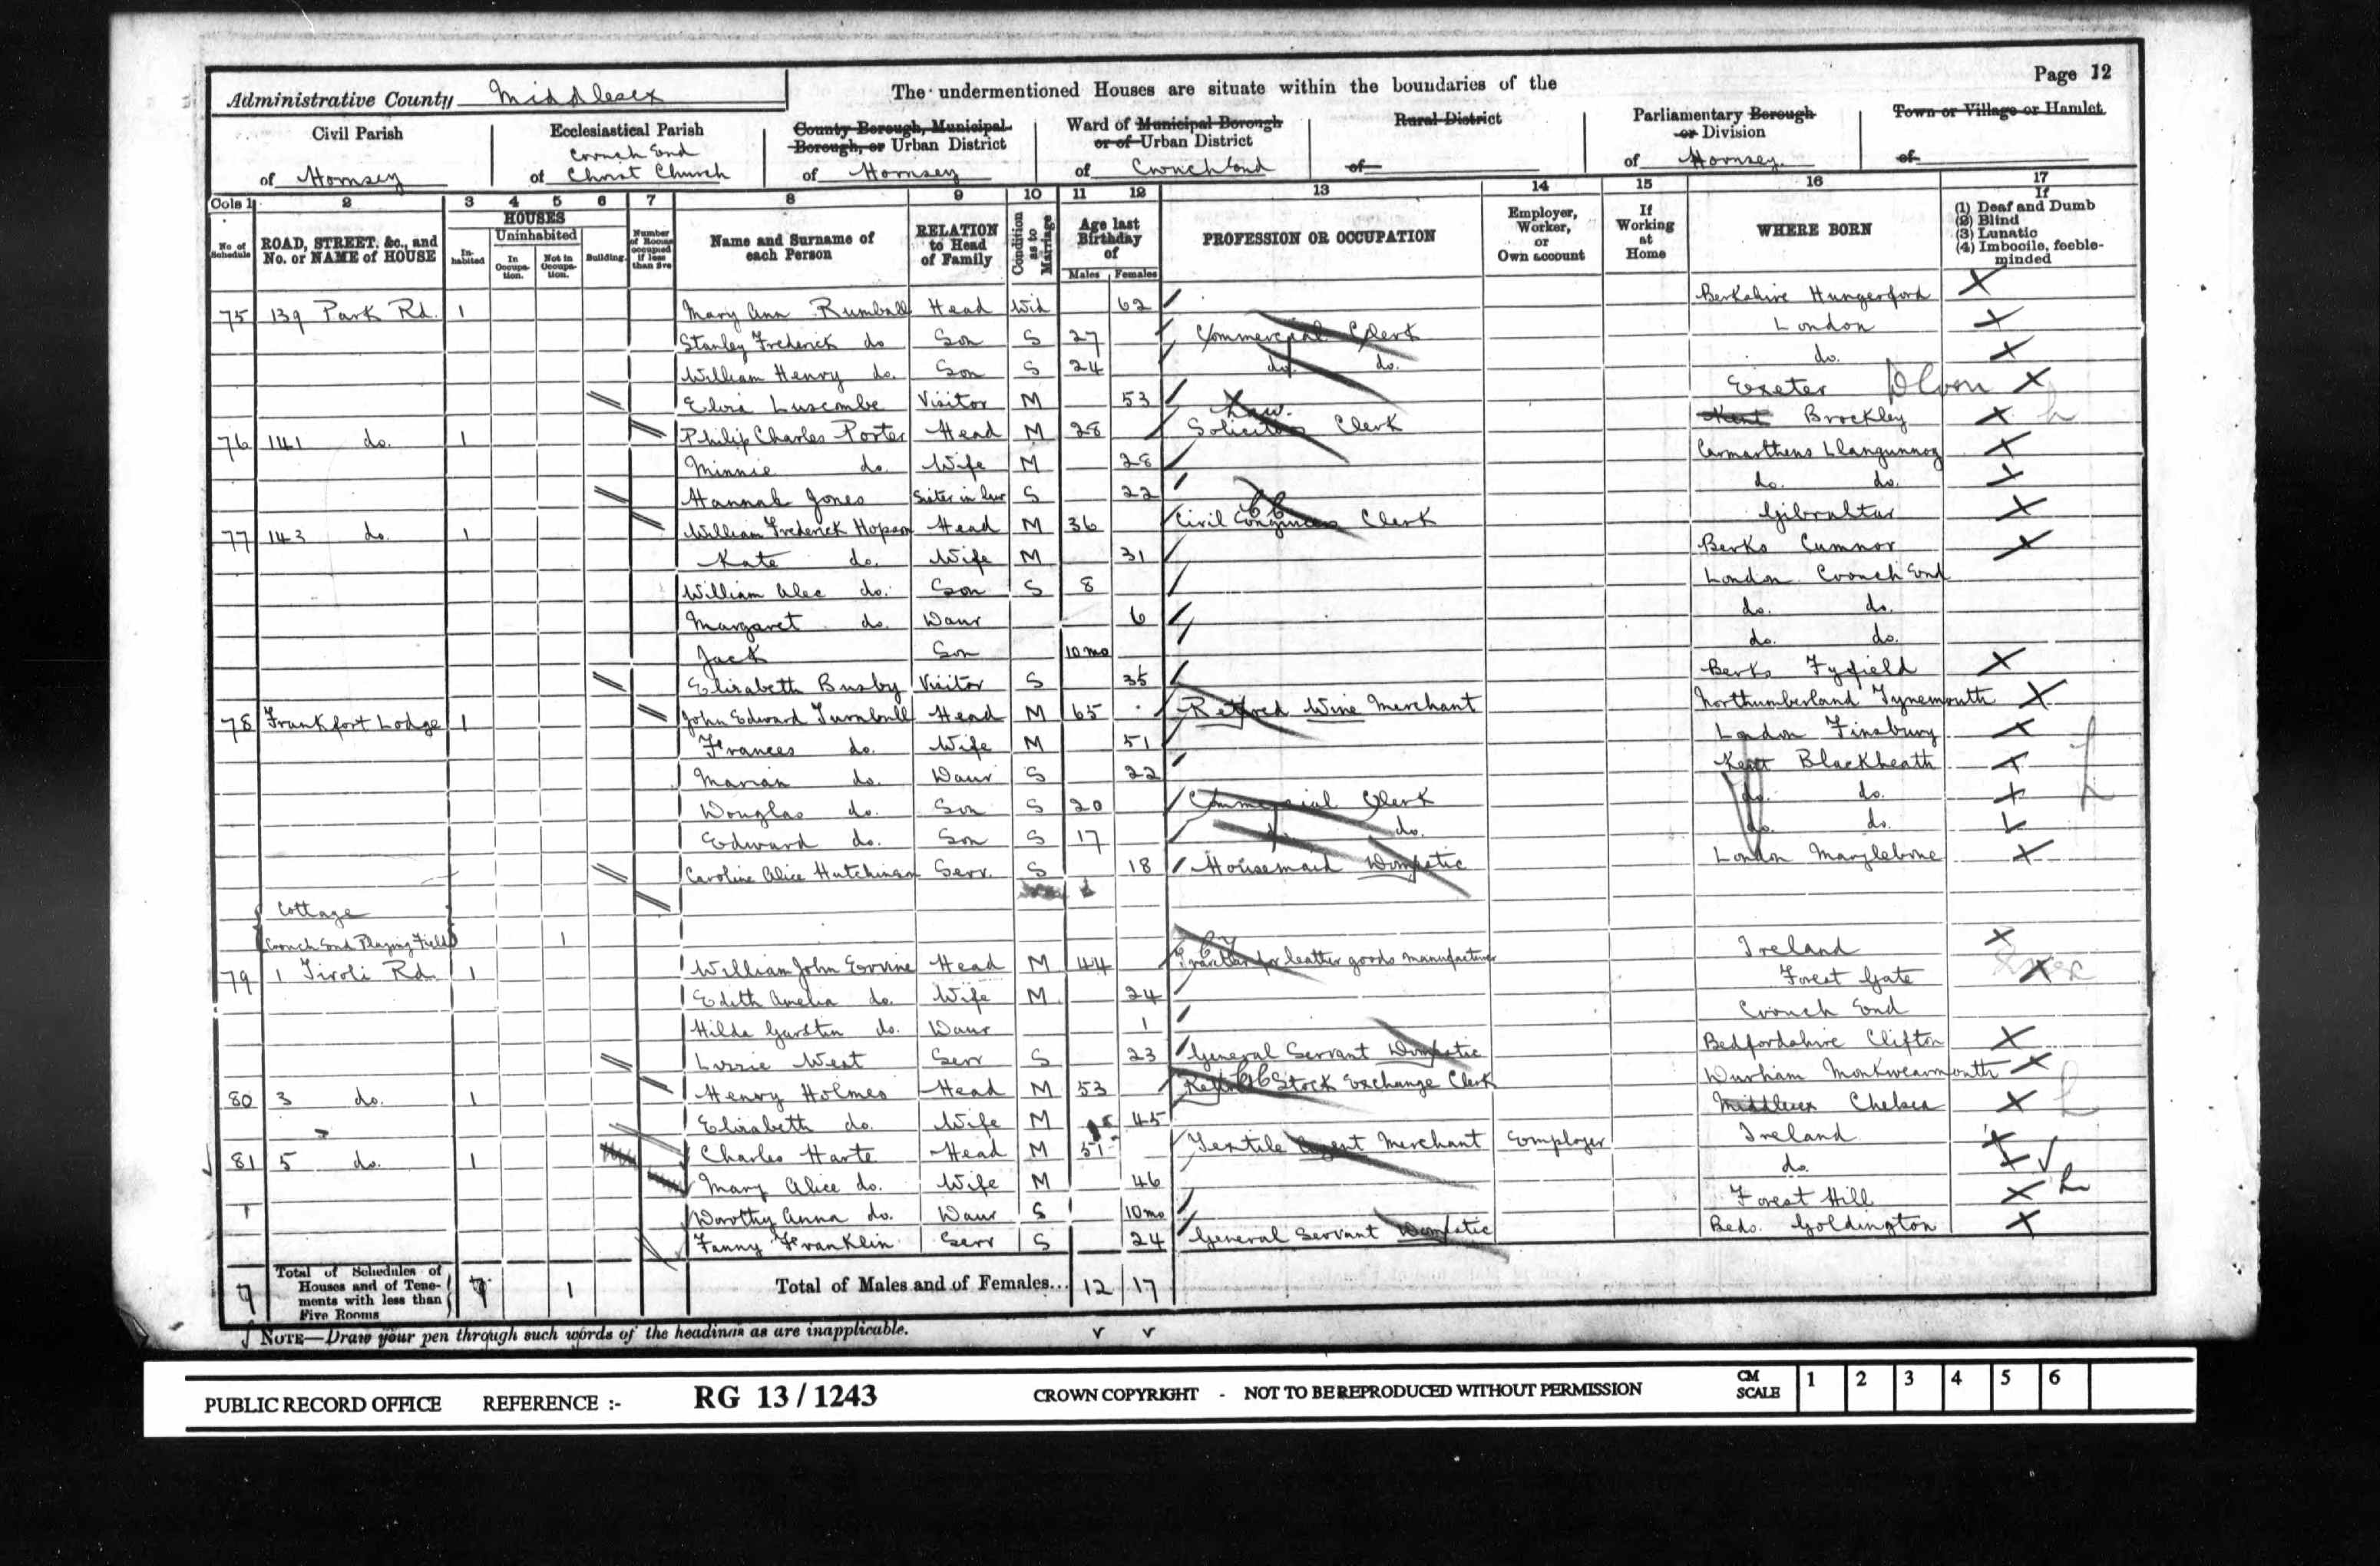 Page 12
Administrative County Middlesex
The undermentioned Houses are situate within the boundaries of the
Civil Parish
of Hornsey
Ecclesiastical Parish
Crouch End
of Christ Church
County Borough, Municipal
Borough, or Urban District
of Hornsey
Ward of Municipal Borough
or of Urban District
of Crouch End
Rural District
of
Parliamentary Borough
or Division
of Hornsey
Town or Village or Hamlet
of
Cols 1 2 3 4 5 6 7 8 9 10 11 12 13 14 15 16 17
No of Schedule
ROAD, STREET, &c., and No. or NAME of HOUSE
HOUSES
Inhabited
Uninhabited
In Occupation.
Not in Occupation.
Building.
Number of Rooms occupied if less than five
Name and Surname of each Person
RELATION to Head of Family
Condition as to Marriage
Age last Birthday of
Males Females
PROFESSION OR OCCUPATION
Employer, Worker, or Own account
If Working at Home
WHERE BORN
If
(1) Deaf and Dumb
(2) Blind
(3) Lunatic
(4) Imbecile, feeble-minded
75 139 Park Rd. 1 Mary Ann Rumball Head Wid 62 Berkshire Hungerford
Stanley Frederick do Son S 27 Commercial Clerk London
William Henry do. Son S 24 do. do. do.
Luscombe Visitor M 53 Exeter Devon
76 141 do. 1 Philip Charles Porter Head M 28 Solicitors Law. Clerk Kent Brockley
Minnie do. Wife M 28 Carmarthens Llangunnog
Hannah Jones Sister in law S 22 do. do.
77 143 do. 1 William Frederick Hopson Head M 36 Civil Engineers Clerk Gibraltar
Kate do. Wife M 31 Berks Cumnor
William Alec do. Son S 8 London Crouch End
Margaret do. Daur 6 do. do.
Jack Son 10 mo do. do.
Elizabeth Busby Visitor S 35 Berks Fyfield
78 Frankfort Lodge 1 John Edward Turnbull Head M 65 Retired Wine Merchant Northumberland Tynemouth
Frances do. Wife M 51 London Finsbury
Marian do. Daur S 22 Kent Blackheath
Douglas do. Son S 20 Commercial Clerk do. do.
Edward do. Son S 17 do. do. do. do.
Caroline Alice Hutchinson Serv. S 18 Housemaid Domestic London Marylebone
Cottage
Crouch End Playing Field 1
79 1 Tivoli Rd 1 William John Ervine Head M 44 Traveller for leather goods manufacturer Ireland
Edith Amelia do. Wife M 24 Forest Gate Essex
Hilda Garstin do. Daur 1 Crouch End
Lizzie West Serv S 23 General Servant Domestic Bedfordshire Clifton
80 3 do. 1 Henry Holmes Head M 53 Retired Stock Exchange Clerk Durham Monkwearmouth
Elizabeth do. Wife M 45 Middlesex Chelsea
81 5 do. 1 Charles Harte Head M 51 Textile Agent Merchant Employer Ireland
Mary Alice do. Wife M 46 do.
Dorothy Anna do. Daur S 10 mo Forest Hill
Fanny Franklin Serv S 24 General Servant Domestic Beds. Goldington
7 Total of Schedules of Houses and of Tenements with less than Five Rooms 7 1 Total of Males and of Females... 12 17
NOTE—Draw your pen through such words of the headings as are inapplicable.
PUBLIC RECORD OFFICE REFERENCE :- RG 13 / 1243 CROWN COPYRIGHT - NOT TO BE REPRODUCED WITHOUT PERMISSION CM SCALE 1 2 3 4 5 6